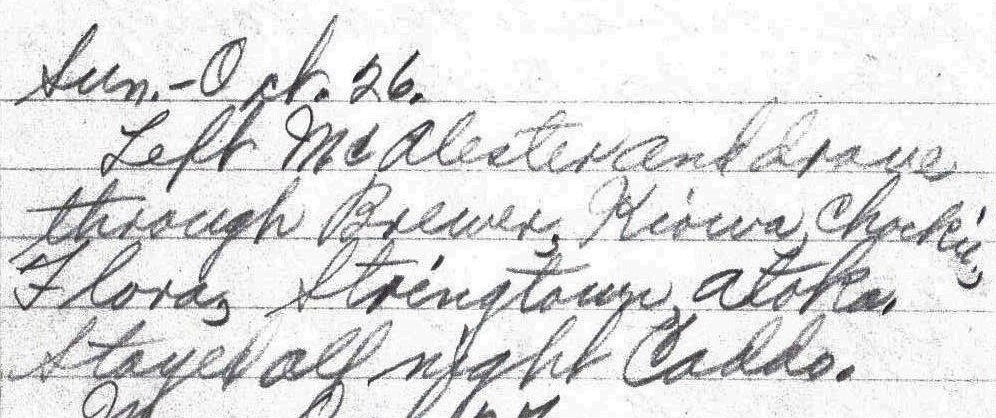 Sun.-Oct. 26.
Left McAlester and drove
through Brewer, Kiowa, Chockie,
Flora, Stringtown, Atoka.
Stayed all night Caddo.